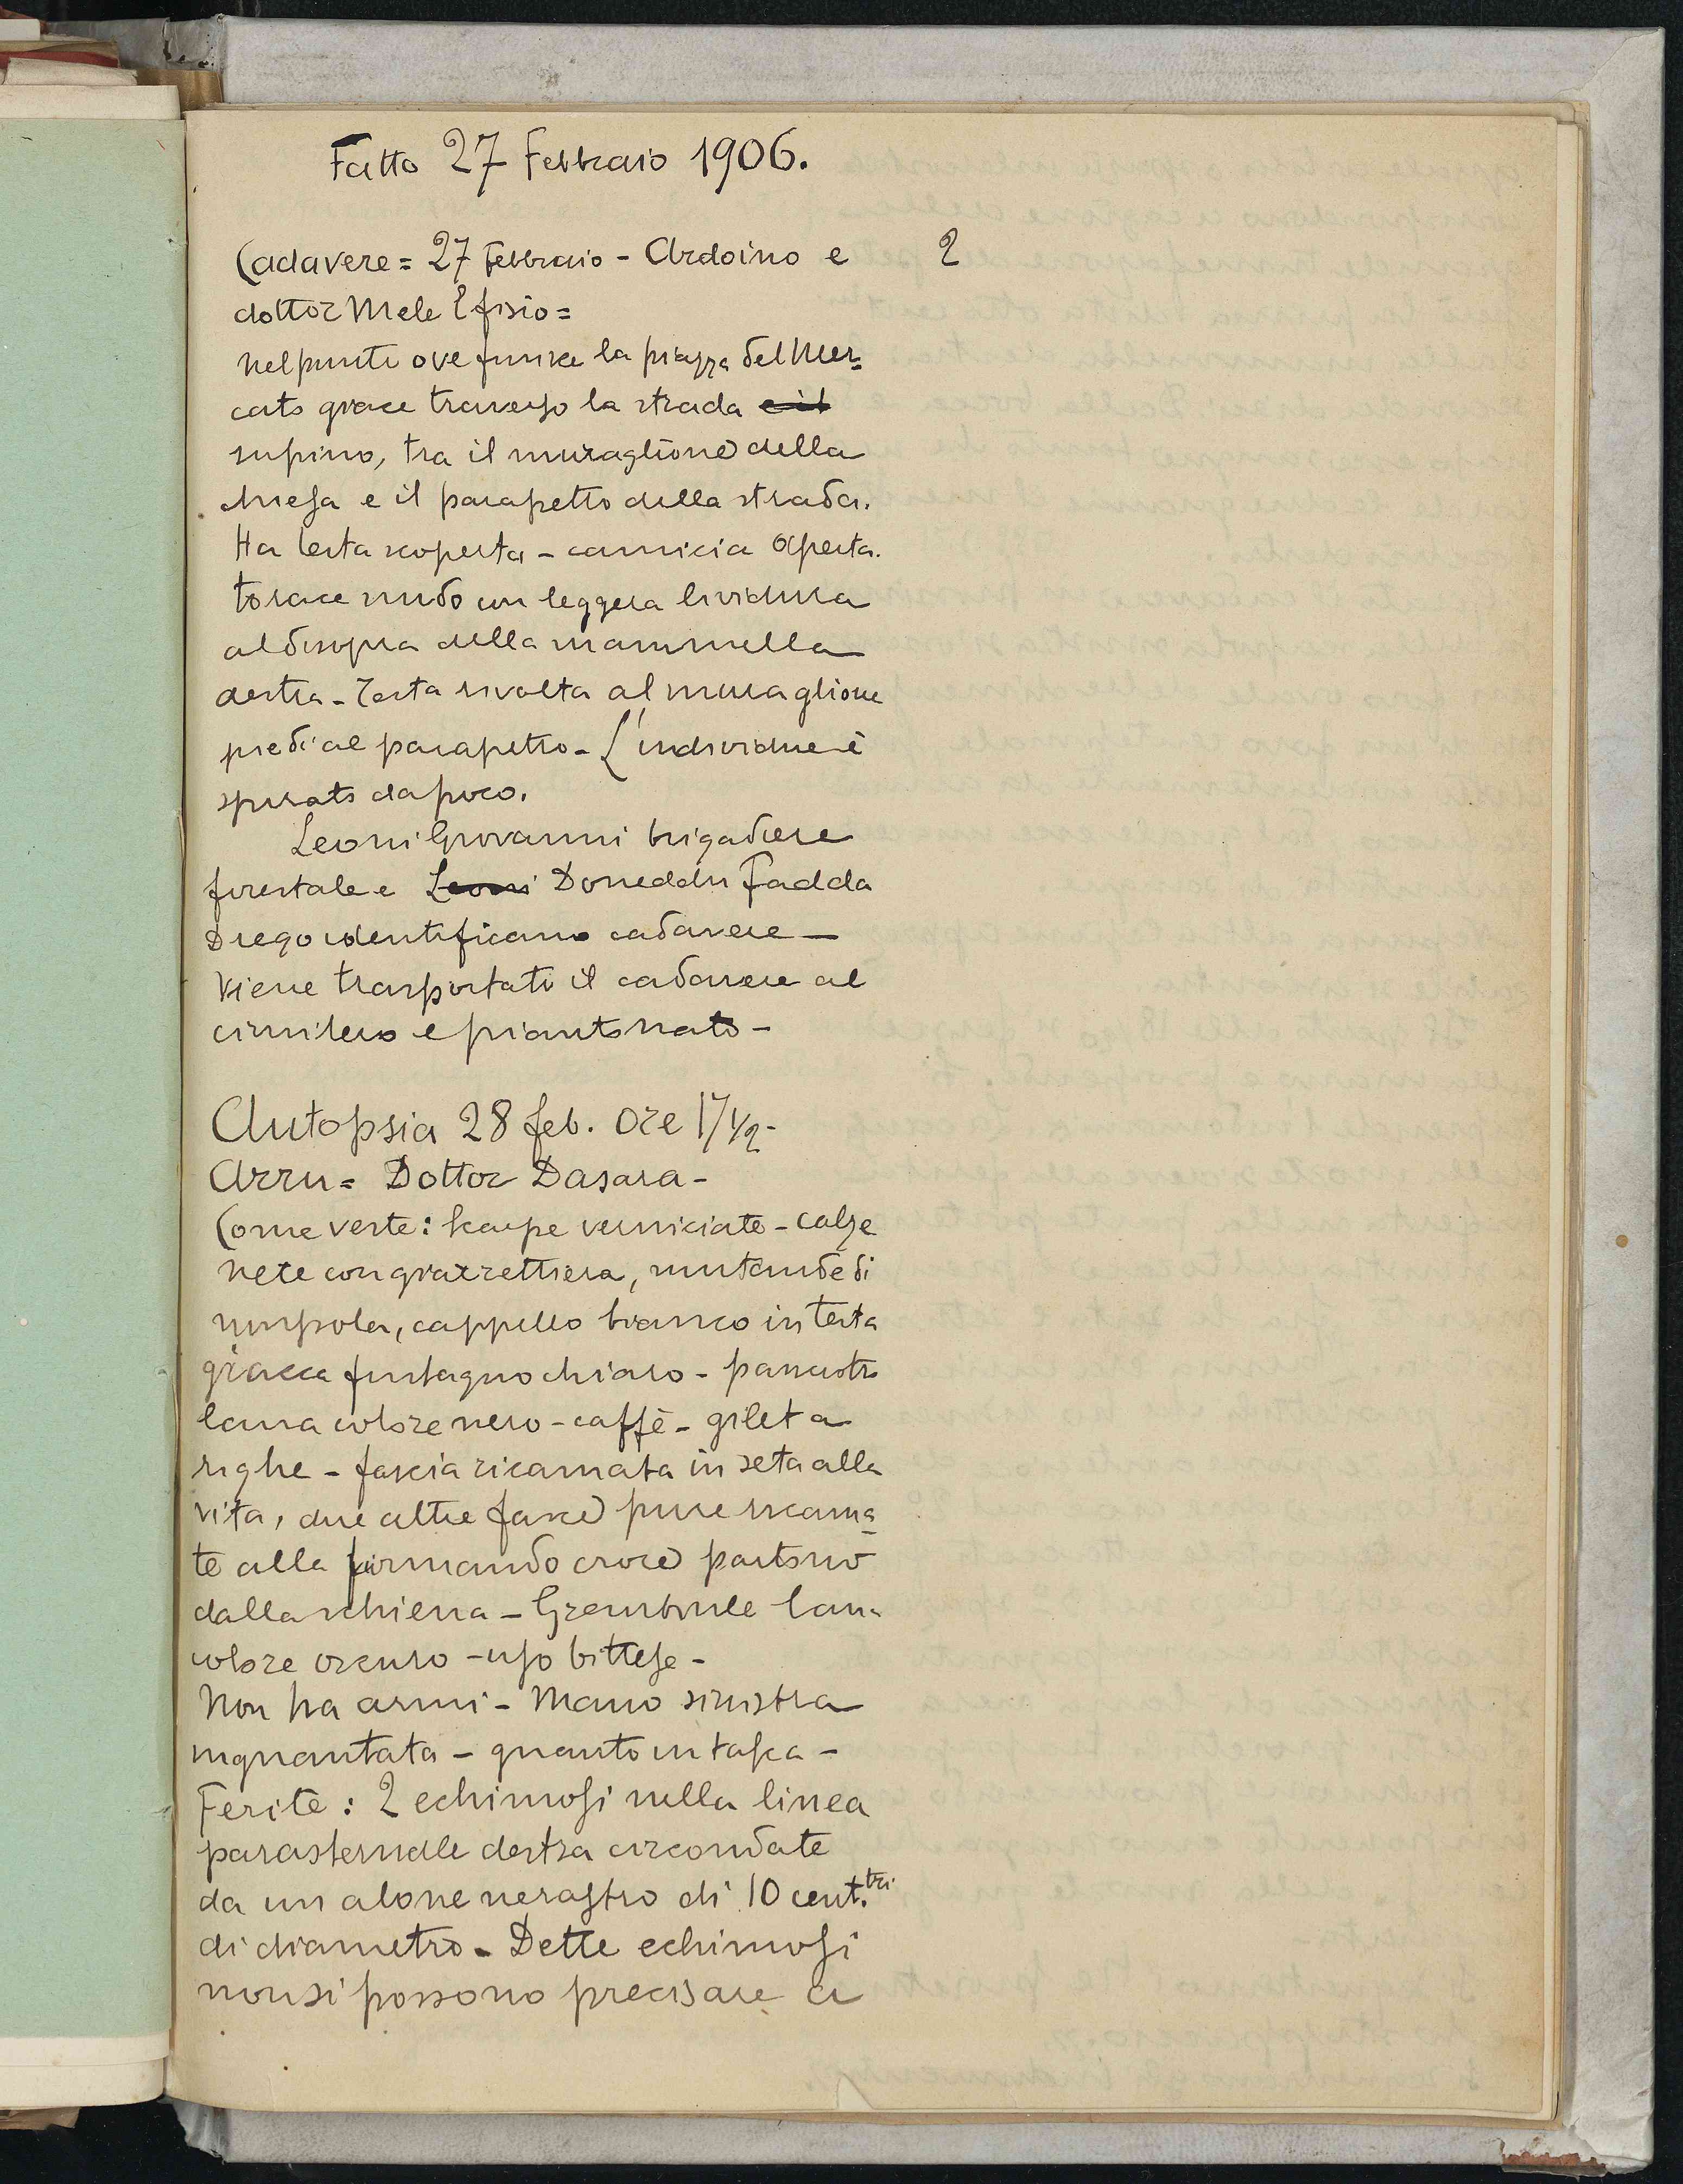 Fatto 27 Febbraio 1906.
Cadavere = 27 Febbraio - Ardoino e 2
dottor Mele Efisio =
Nel punto ove finisce la piazza del Mer=
cato giace traverso la strada e il
supino, tra il muraglione della
chiesa e il parapetto della strada.
Ha testa scoperta - camicia aperta.
torace nudo con leggera lividura
al disopra della mammella
destra - Testa rivolta al muraglione
piedi al parapetto - L'individuo è
spirato da poco.
Leoni Giovanni brigadiere
forestale e Leoni Doneddu Fadda
Diego identificano cadavere -
Viene trasportato il cadavere al
cimitero e piantonato -
Autopsia 28 feb. Ore 17 1/2 -
Arru = Dottor Dasara -
Come veste: Scarpe verniciate - calze
nere con giarrettiera, mutande di
cappello bianco in testa
giacca fustagno chiaro - panciotto
lana colore nero - caffè - gilet a
righe - fascia ricamata in seta alla
vita, due altre fasce pure ricama=
te alla formando croce partono
dalla schiena - Grembiule lana
colore oscuro - uso bittese -
Non ha armi - Mano sinistra
inguantata - guanto in tasca -
Ferite: 2 echimosi nella linea
parasternale destra circondate
da un alone nerastro di 10 cent.tri
di diametro - Dette echimosi
non si possono precisare a